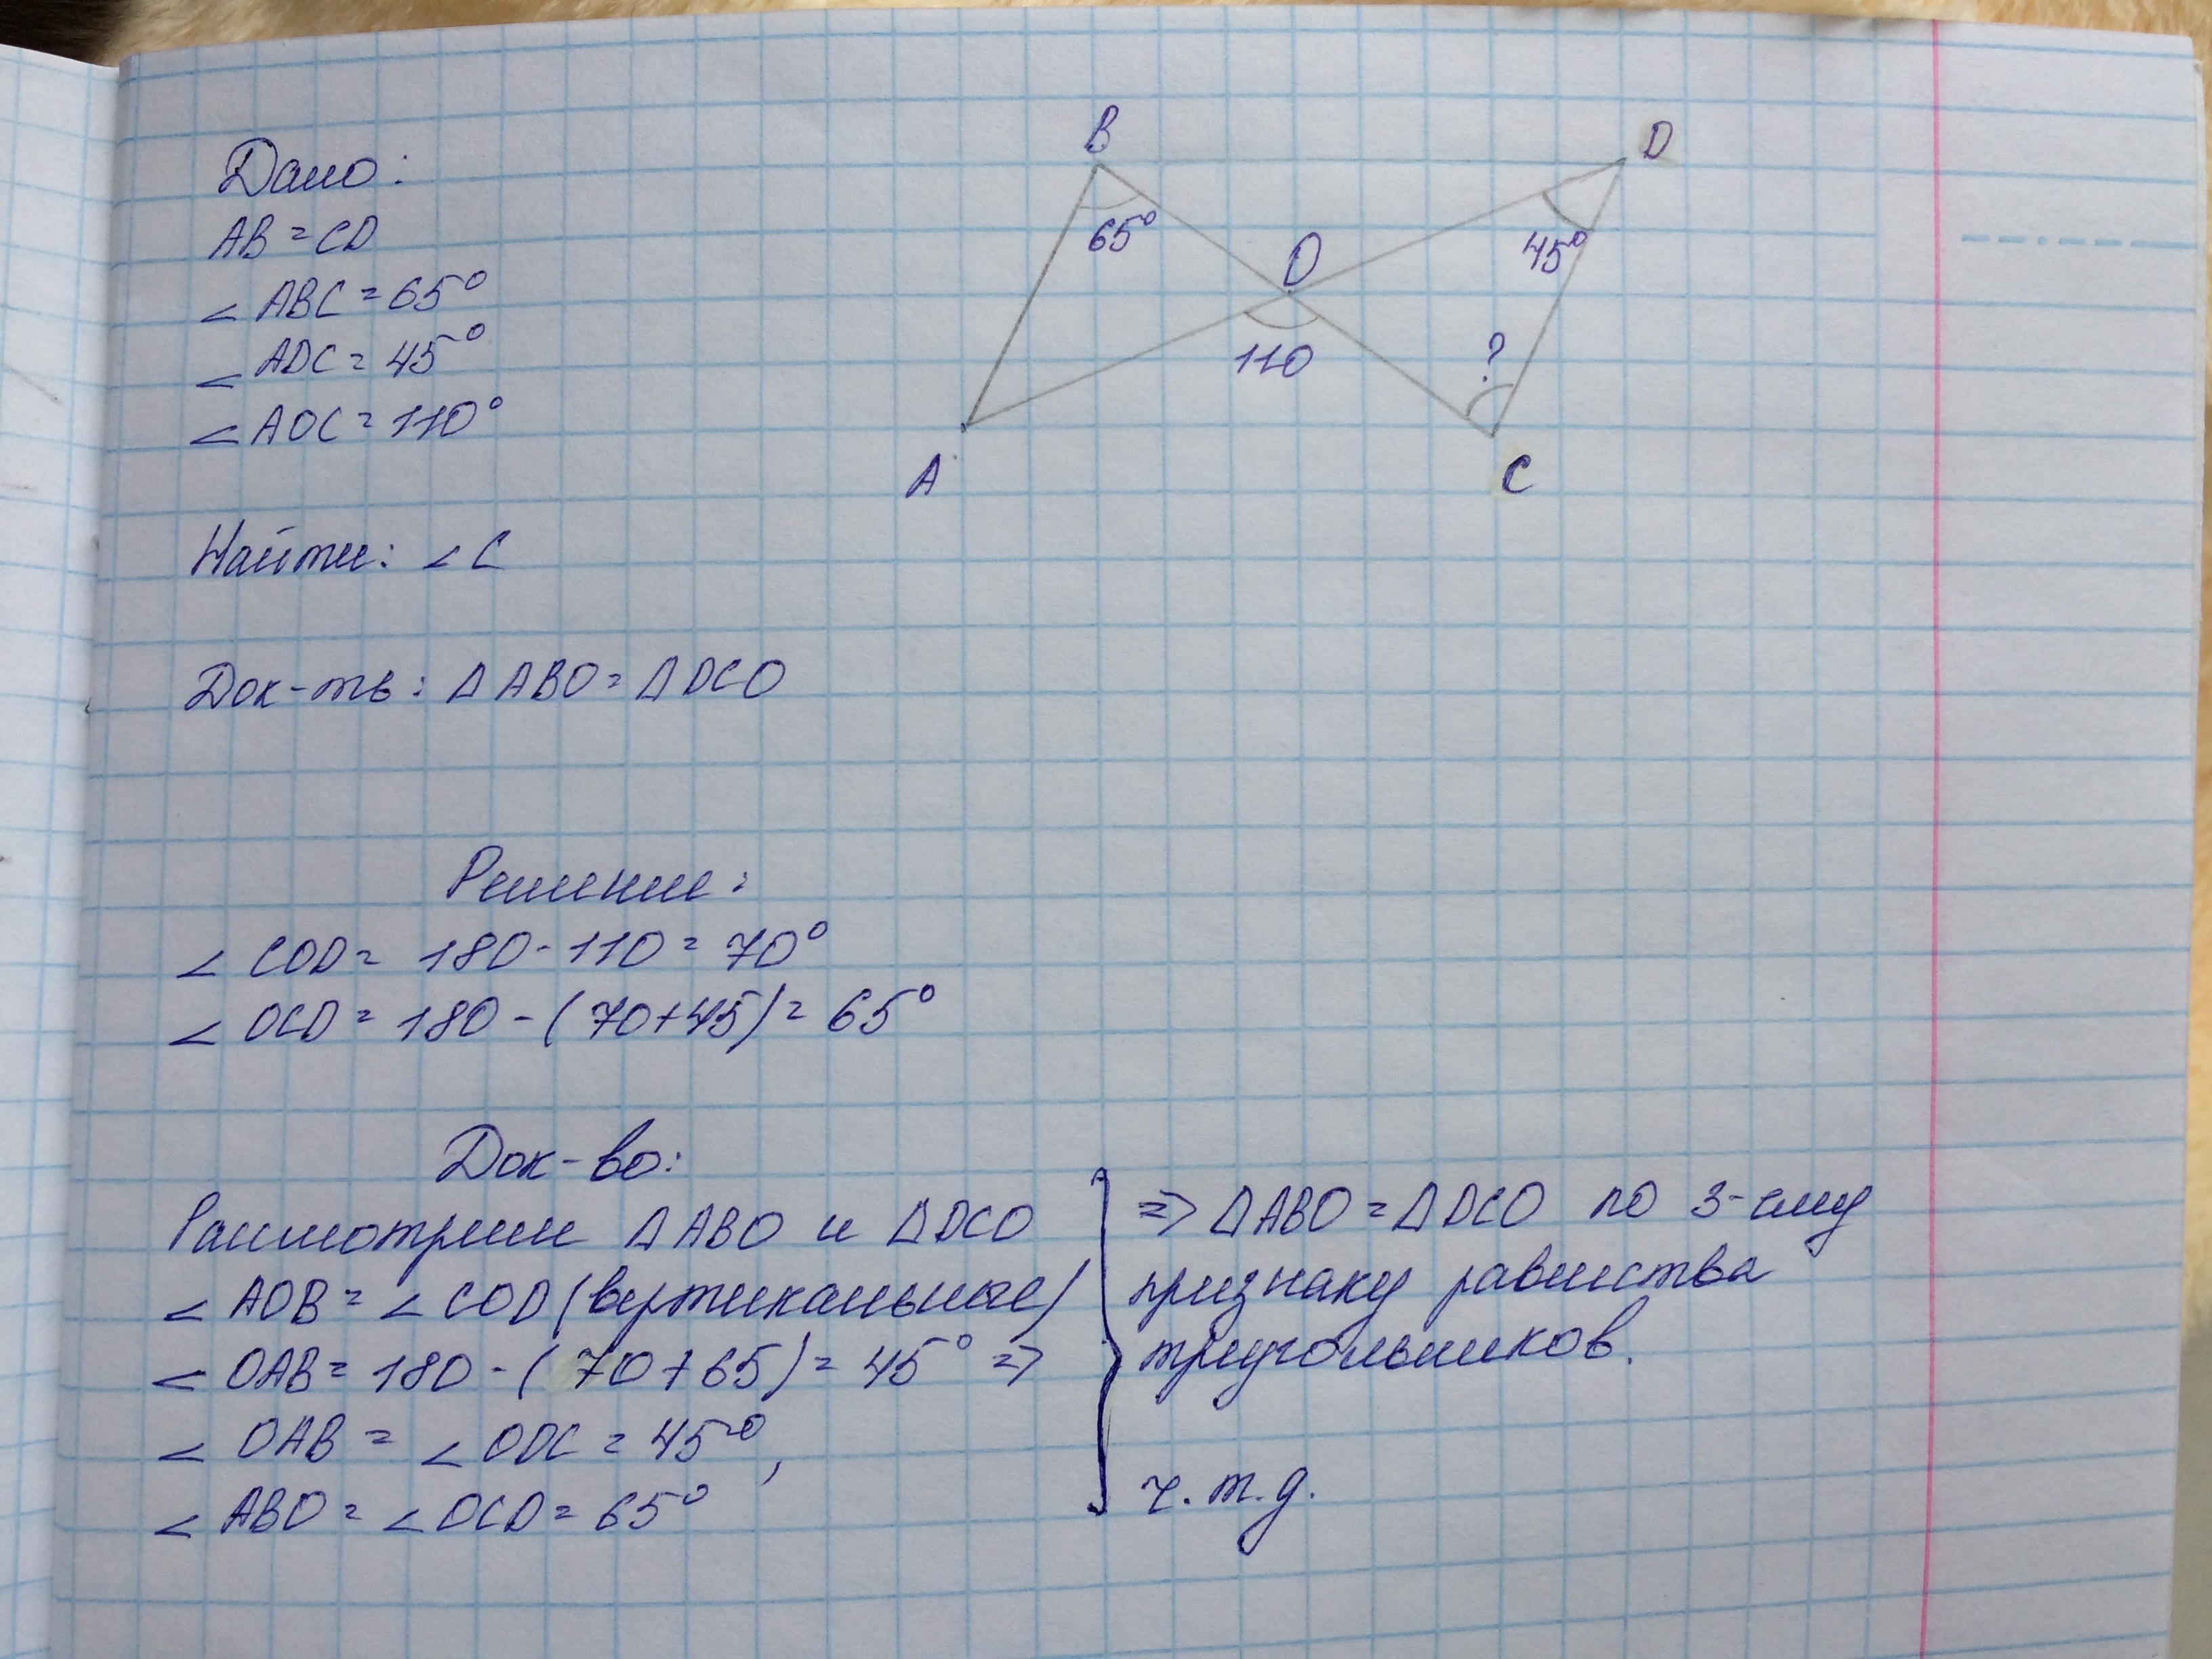 Дано:
AB = CD
∠ ABC = 65°
∠ ADC = 45°
∠ AOC = 110°
B
D
65°
O
45°
110
?
A
C
Найти: ∠ C
Док-ть: Δ ABO = Δ DCO
Решение:
∠ COD = 180 - 110 = 70°
∠ OCD = 180 - (70+45) = 65°
Док-во:
Рассмотрим Δ ABO и Δ DCO
∠ AOB = ∠ COD (вертикальные)
∠ OAB = 180 - (70+65) = 45° =>
∠ OAB = ∠ ODC = 45°,
∠ ABO = ∠ OCD = 65°
=> Δ ABO = Δ DCO по 3-ему
признаку равенства
треугольников.
ч.т.д.